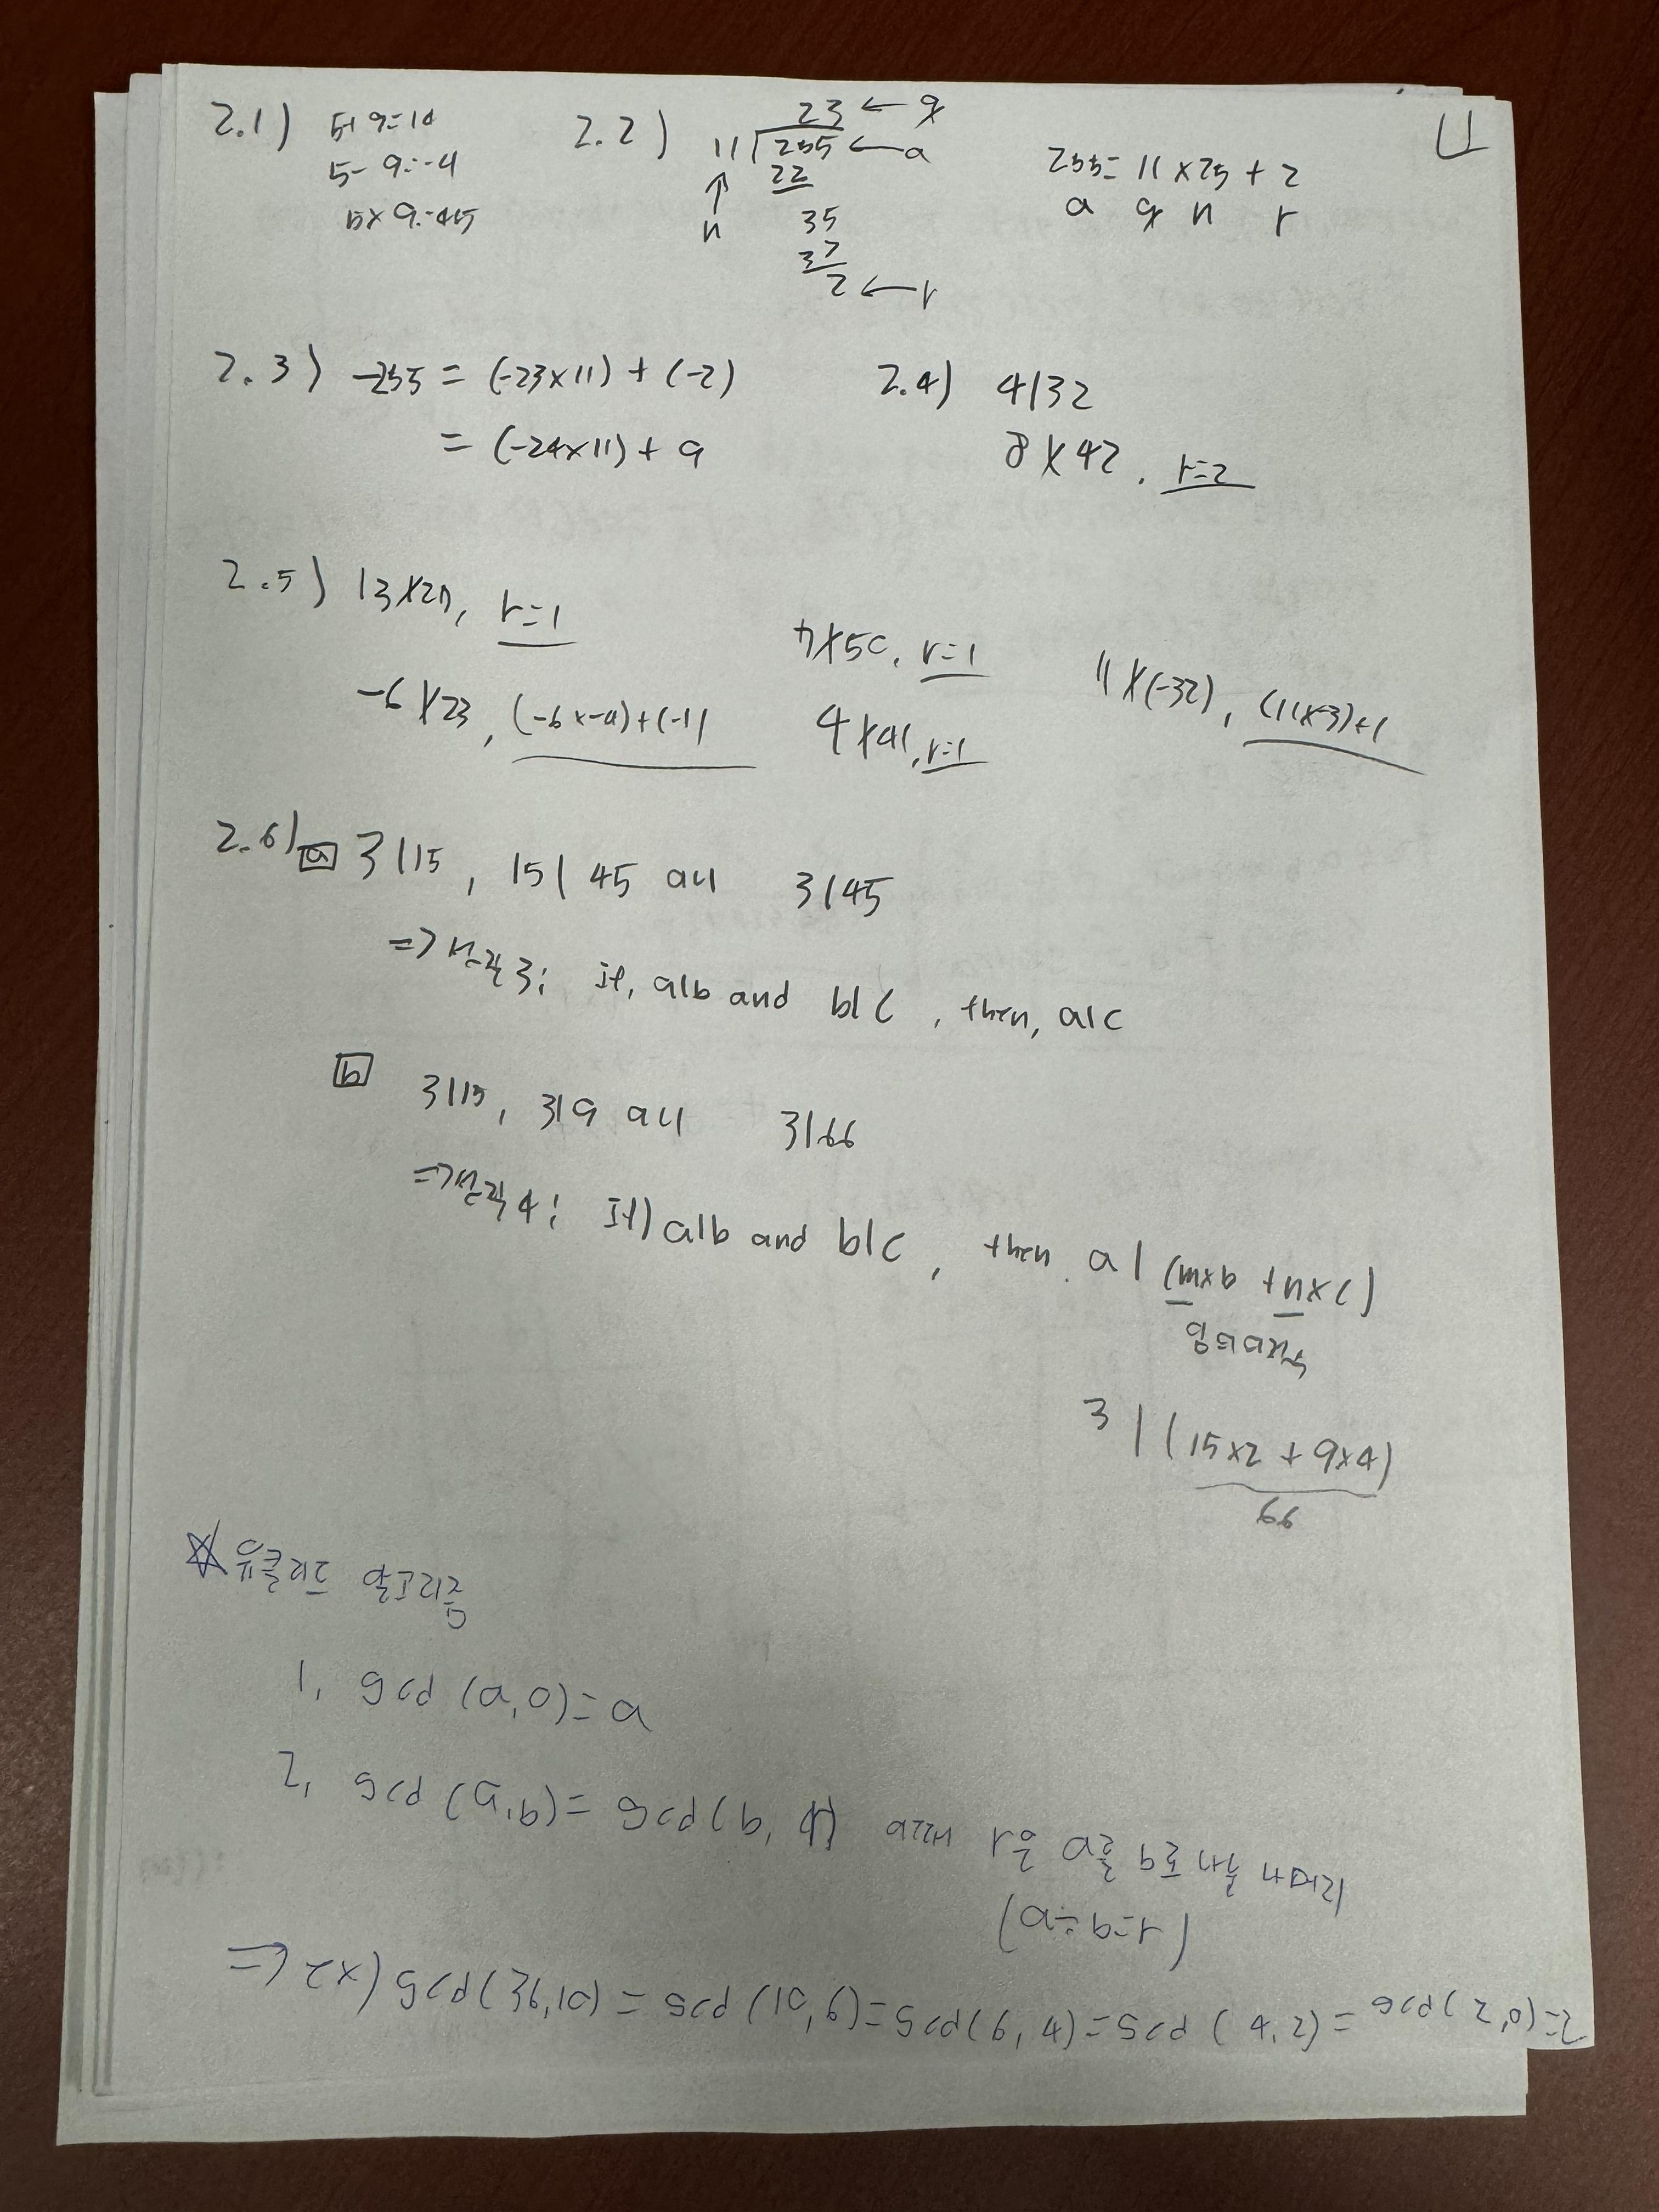 2.1) 5+9=14
5-9=-4
5×9=45
2.2) 23 ← q
11 255 ← a
↑ 22
n 35
33
2 ← r
255= 11×23 + 2
a q n r
2.3) -255 = (-23×11) + (-2)
= (-24×11) + 9
2.4) 4|32
8∤42, r=2
2.5) 13∤27, r=1
-6∤23, (-6×-4)+(-1)
7∤50, r=1
4∤41, r=1
11∤(-32), (11×-3)+1
2.6) a 3|15, 15|45 이니 3|45
=> 성질 3; If, a|b and b|c, then, a|c
b 3|15, 3|9 이니 3|66
=> 성질 4; If) a|b and b|c, then a|(m×b + n×c)
임의의정수
3|(15×2 + 9×4)
66
☆ 유클리드 알고리즘
1, gcd (a,0)=a
2, gcd (a,b)= gcd(b, r) 이때 r은 a를 b로 나눈 나머지
(a÷b=r)
=> ex) gcd(36,10) = gcd (10,6)= gcd(6,4)= gcd (4,2)= gcd(2,0)=2